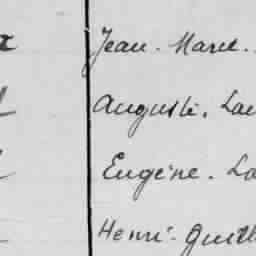 Jean. Marce.
Auguste. Lau
Eugène. Lo
Henri. Guill